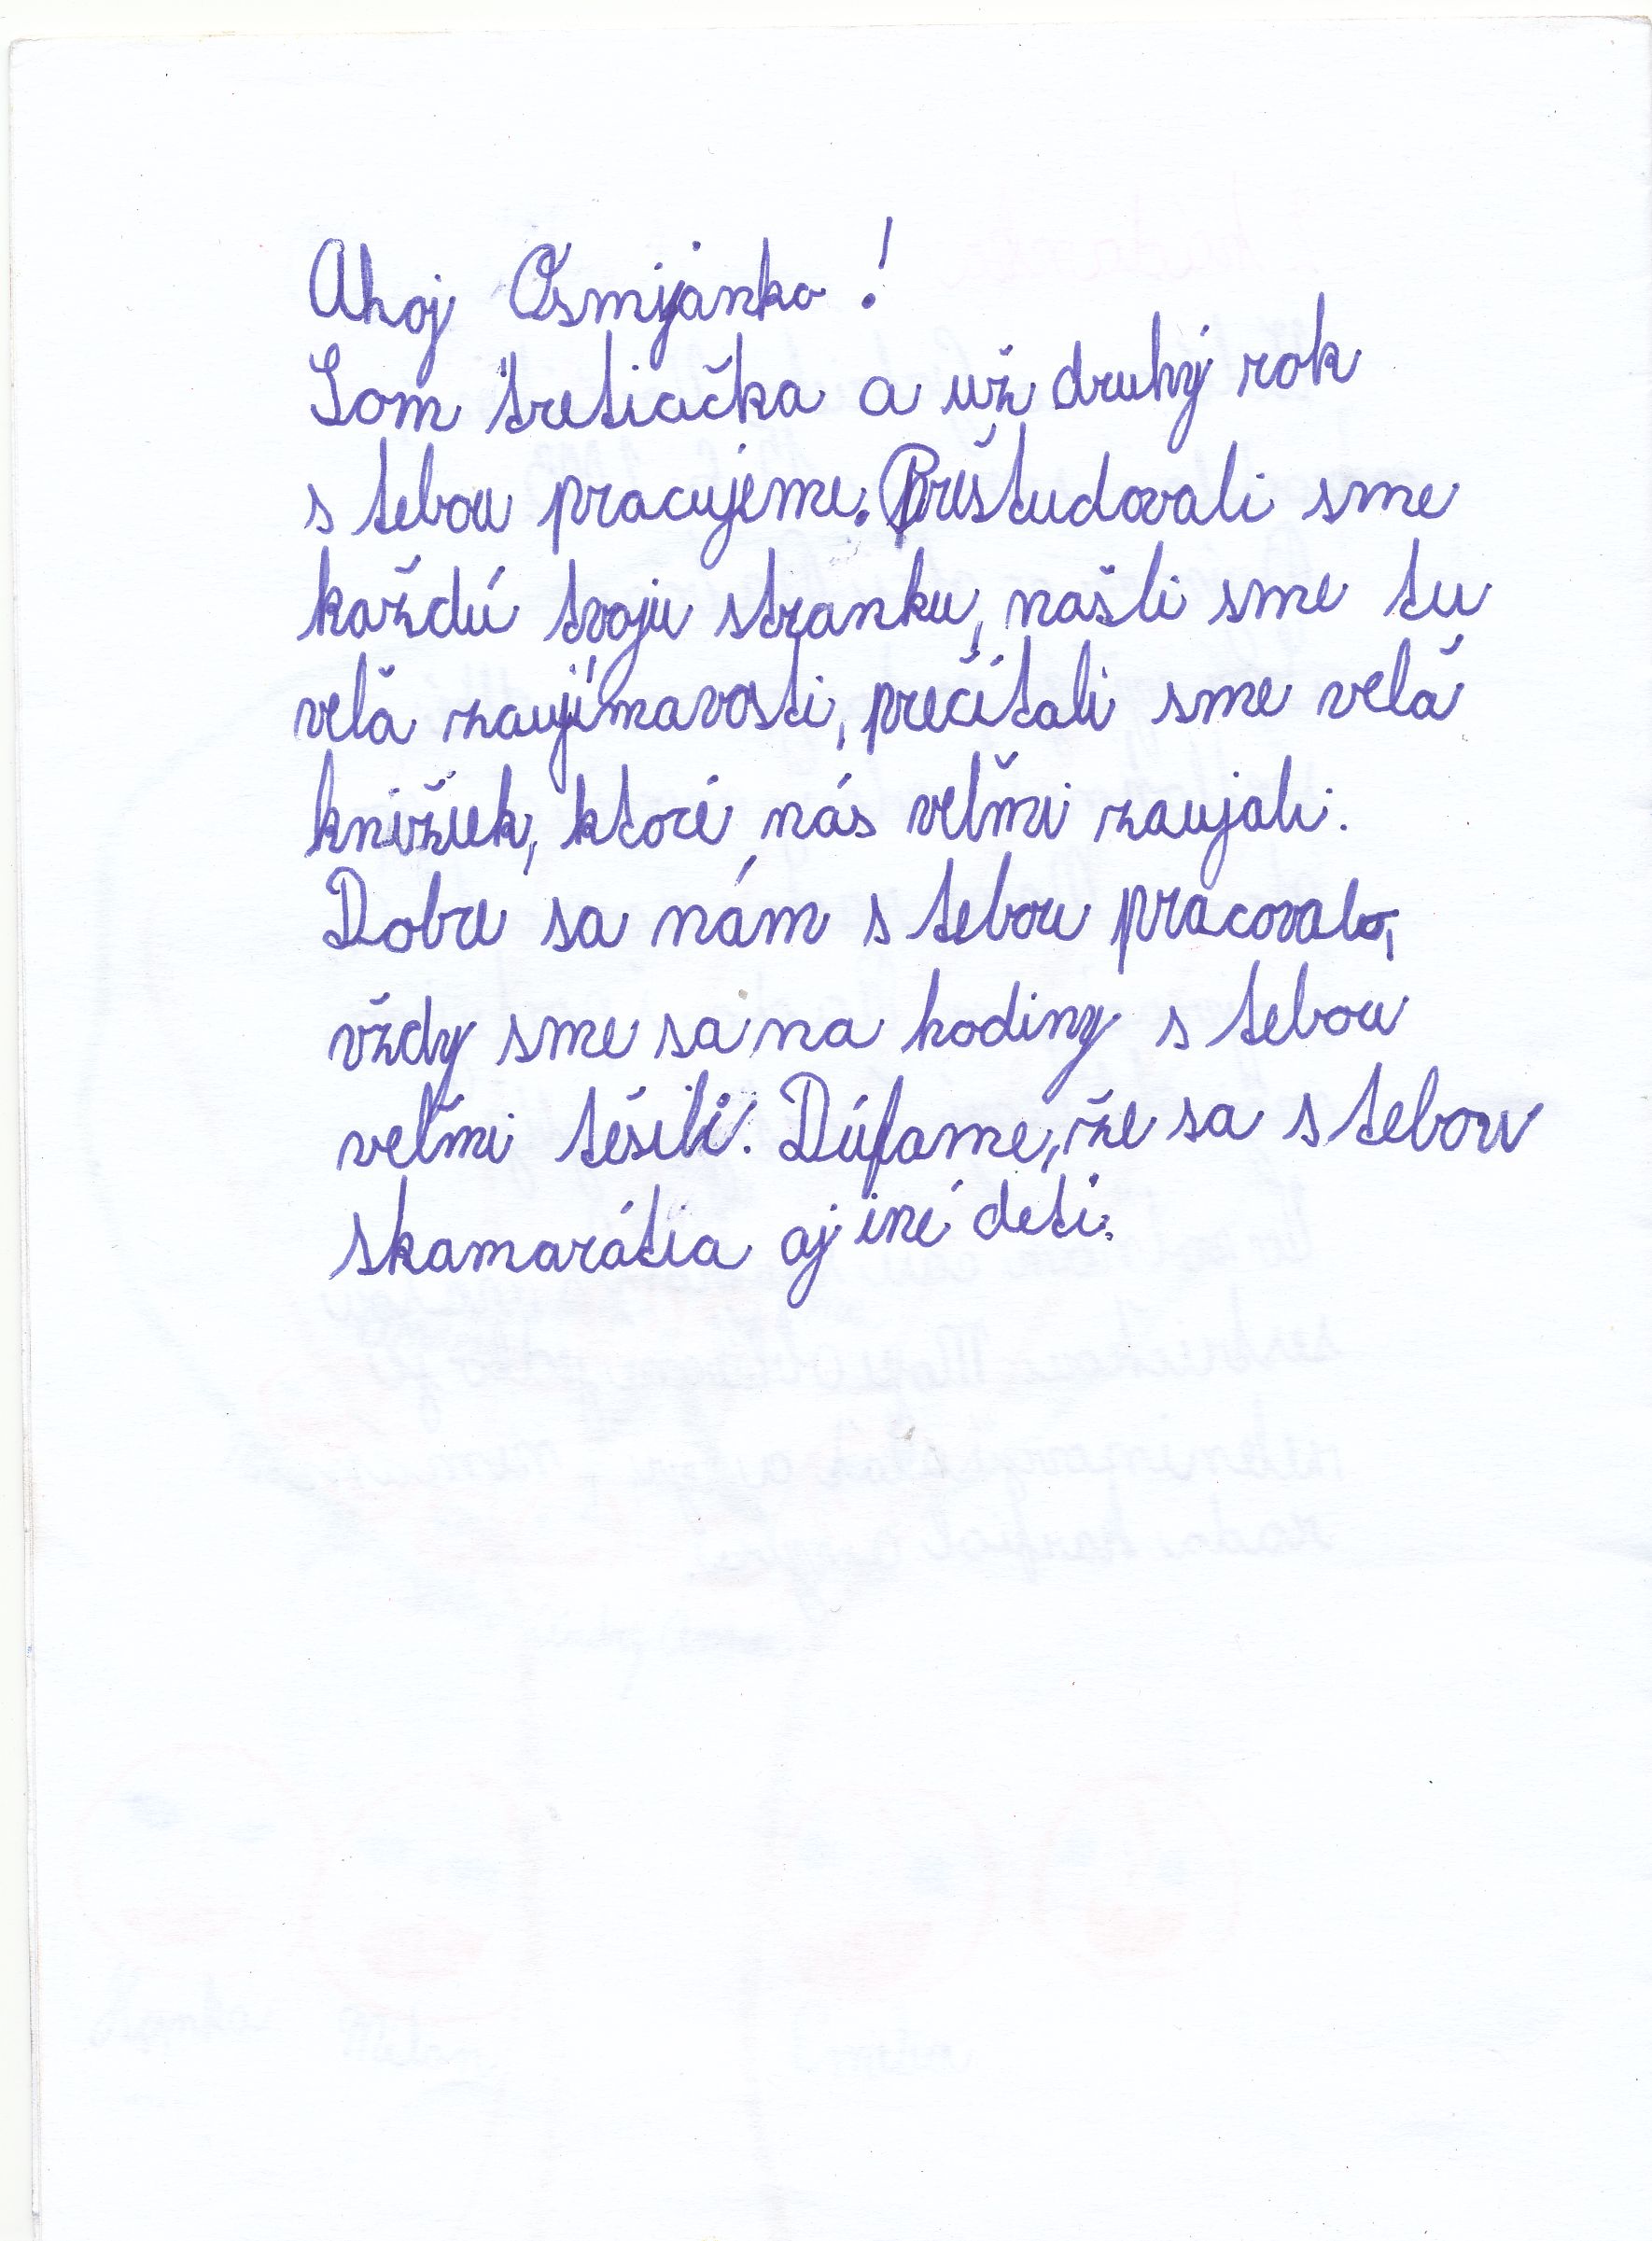 Ahoj Osmijanko!
Som tretiačka a už druhý rok
s tebou pracujeme. Preštudovali sme
každú tvoju stranku, našli sme tu
velă zaujímavosti, prečítali sme velá
knižiek, ktoré nás veľmi zaujali.
Dobre sa nám s tebou pracovalo,
vždy sme sa na hodiny s tebou
veľmi tešili. Dúfame, že sa s tebou
skamarátia aj iné deti.